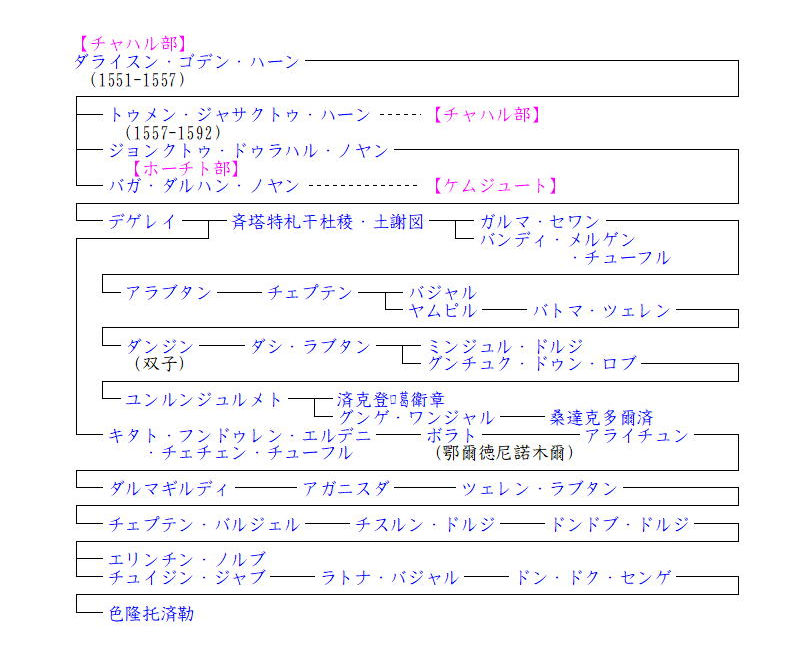 【チャハル部】
ダライスン・ゴデン・ハーン
(1551-1557)
トゥメン・ジャサクトゥ・ハーン 【チャハル部】
(1557-1592)
ジョンクトゥ・ドゥラハル・ノヤン
【ホーチト部】
バガ・ダルハン・ノヤン 【ケムジュート】
デゲレイ 斉塔特札干杜稜・土謝図 ガルマ・セワン
バンディ・メルゲン
・チューフル
アラブタン チェプテン バジャル
ヤムピル バトマ・ツェレン
ダンジン ダシ・ラブタン ミンジュル・ドルジ
(双子) グンチュク・ドゥン・ロブ
ユンルンジュルメト 済克登□葛衛章
グンゲ・ワンジャル 桑達克多爾済
キタト・フンドゥレン・エルデニ ボラト アライチュン
・チェチェン・チューフル (鄂爾徳尼諾木爾)
ダルマギルディ アガニスダ ツェレン・ラブタン
チェプテン・バルジェル チスルン・ドルジ ドンドブ・ドルジ
エリンチン・ノルブ
チュイジン・ジャブ ラトナ・バジャル ドン・ドク・センゲ
色隆托済勒